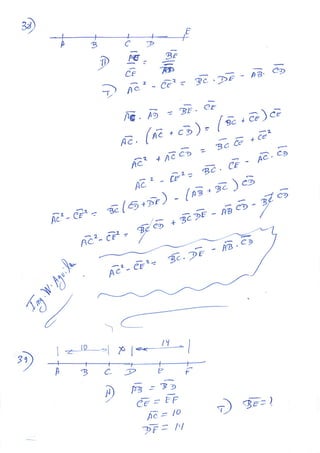 38)
A B C D E
H) AC/CE = BE/AD
T) AC² - CE² = BC · DE - AB · CD
AC · AD = BE · CE
AC · (AC + CD) = (BC + CE) CE
AC² + AC CD = BC CE + CE²
AC² - CE² = BC · CE - AC · CD
AC² - CE² = BC (CD + DE) - (AB + BC) CD
AC² - CE² = BC CD + BC DE - AB CD - BC CD
AC² - CE² = BC · DE - AB · CD
Ing. W. Aguila
39)
10 x 14
A B C D E F
H) AB = BD
CE = EF
AC = 10
DF = 14
T) BE = ?